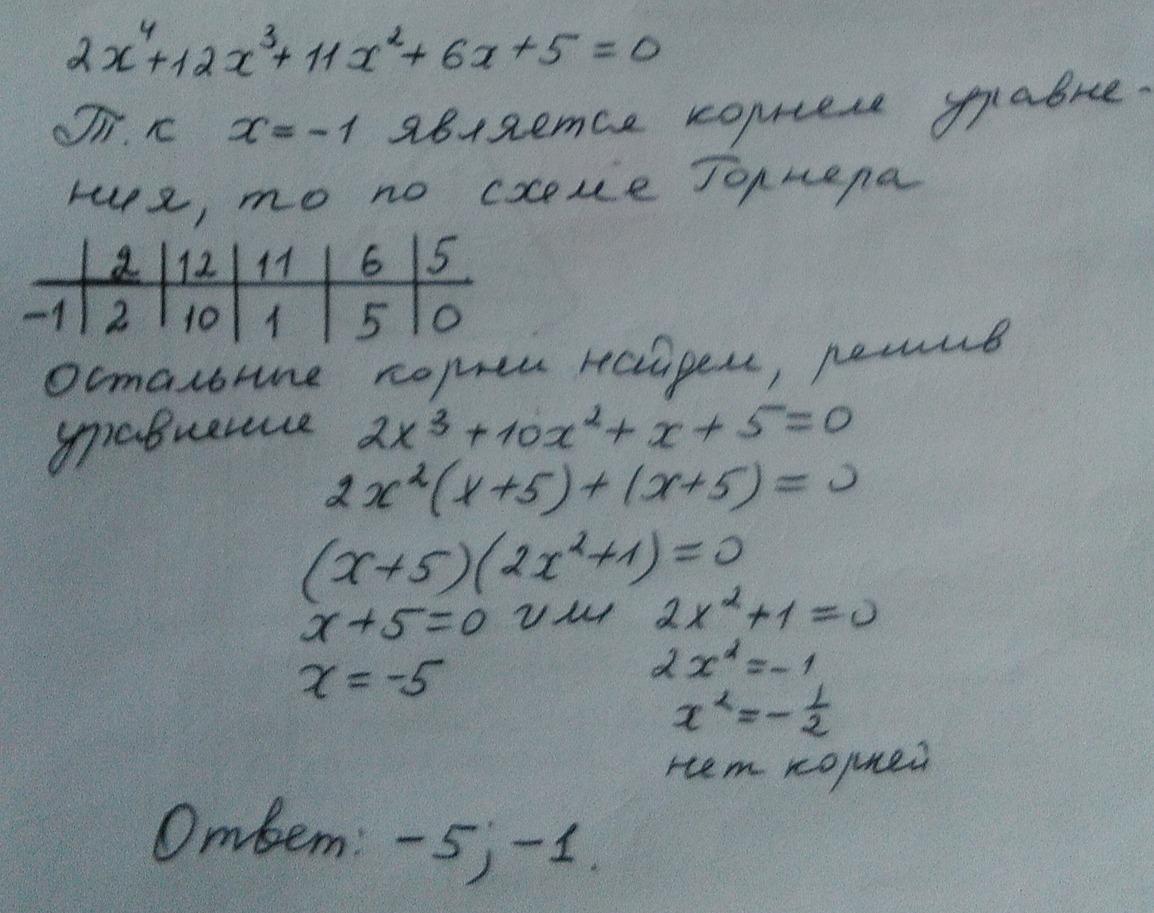 2x⁴+12x³+11x²+6x+5=0
Т.к x=-1 является корнем уравне-
ния, то по схеме Горнера
2 | 12 | 11 | 6 | 5
-1 | 2 | 10 | 1 | 5 | 0
Остальные корни найдем, решив
уравнение 2x³+10x²+x+5=0
2x²(x+5)+(x+5)=0
(x+5)(2x²+1)=0
x+5=0 или 2x²+1=0
x=-5 2x²=-1
x²=-1/2
нет корней
Ответ: -5; -1.